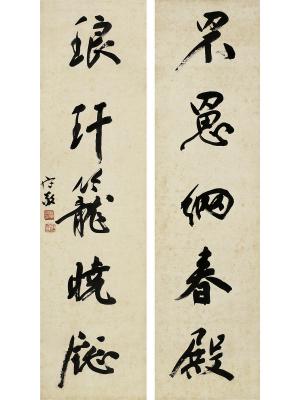 罘罳網春殿
琅玕籠曉
守敬